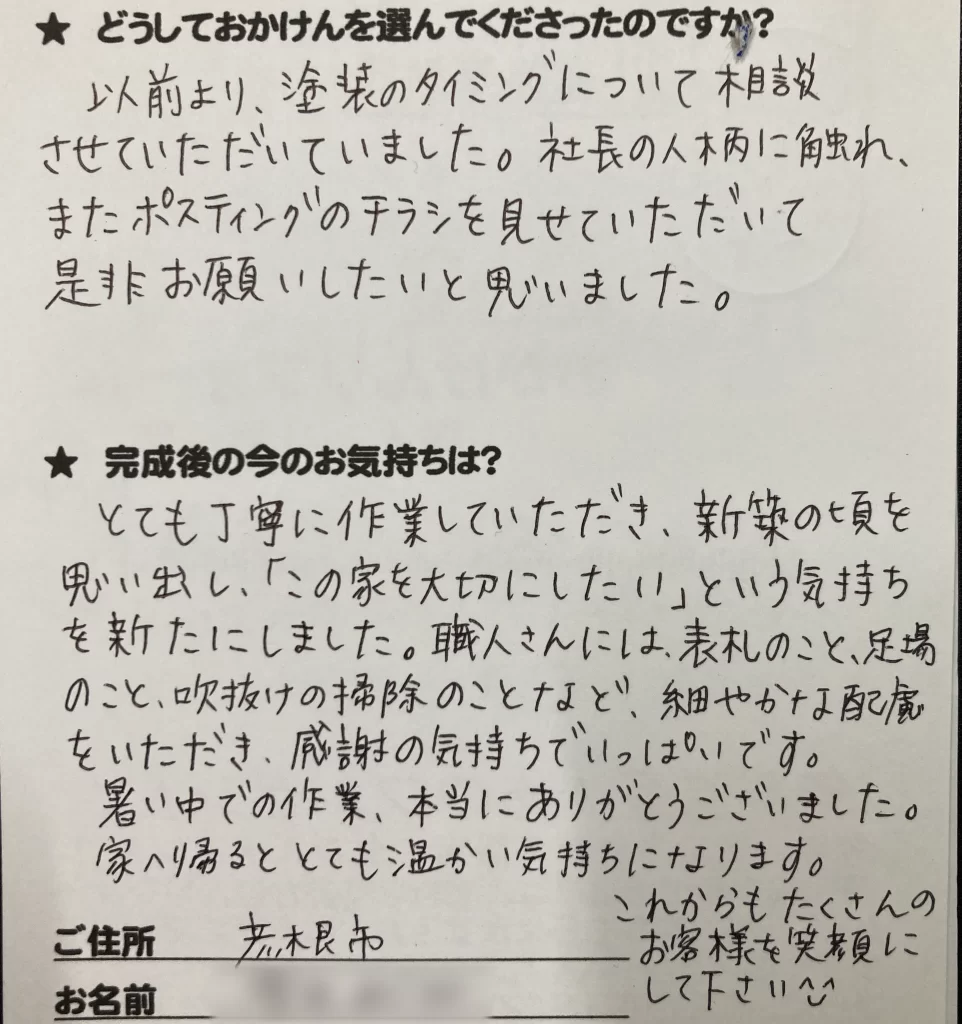 ★ どうしておかけんを選んでくださったのですか?
以前より、塗装のタイミングについて相談
させていただいていました。社長の人柄に触れ、
またポスティングのチラシを見せていただいて
是非お願いしたいと思いました。
★ 完成後の今のお気持ちは?
とても丁寧に作業していただき、新築の頃を
思い出し、「この家を大切にしたい」という気持ち
を新たにしました。職人さんには、表札のこと、足場
のこと、吹抜けの掃除のことなど、細やかな配慮
をいただき、感謝の気持ちでいっぱいです。
暑い中での作業、本当にありがとうございました。
家へ帰るととても温かい気持ちになります。
これからもたくさんの
お客様を笑顔に
して下さい^^
ご住所 彦根市
お名前